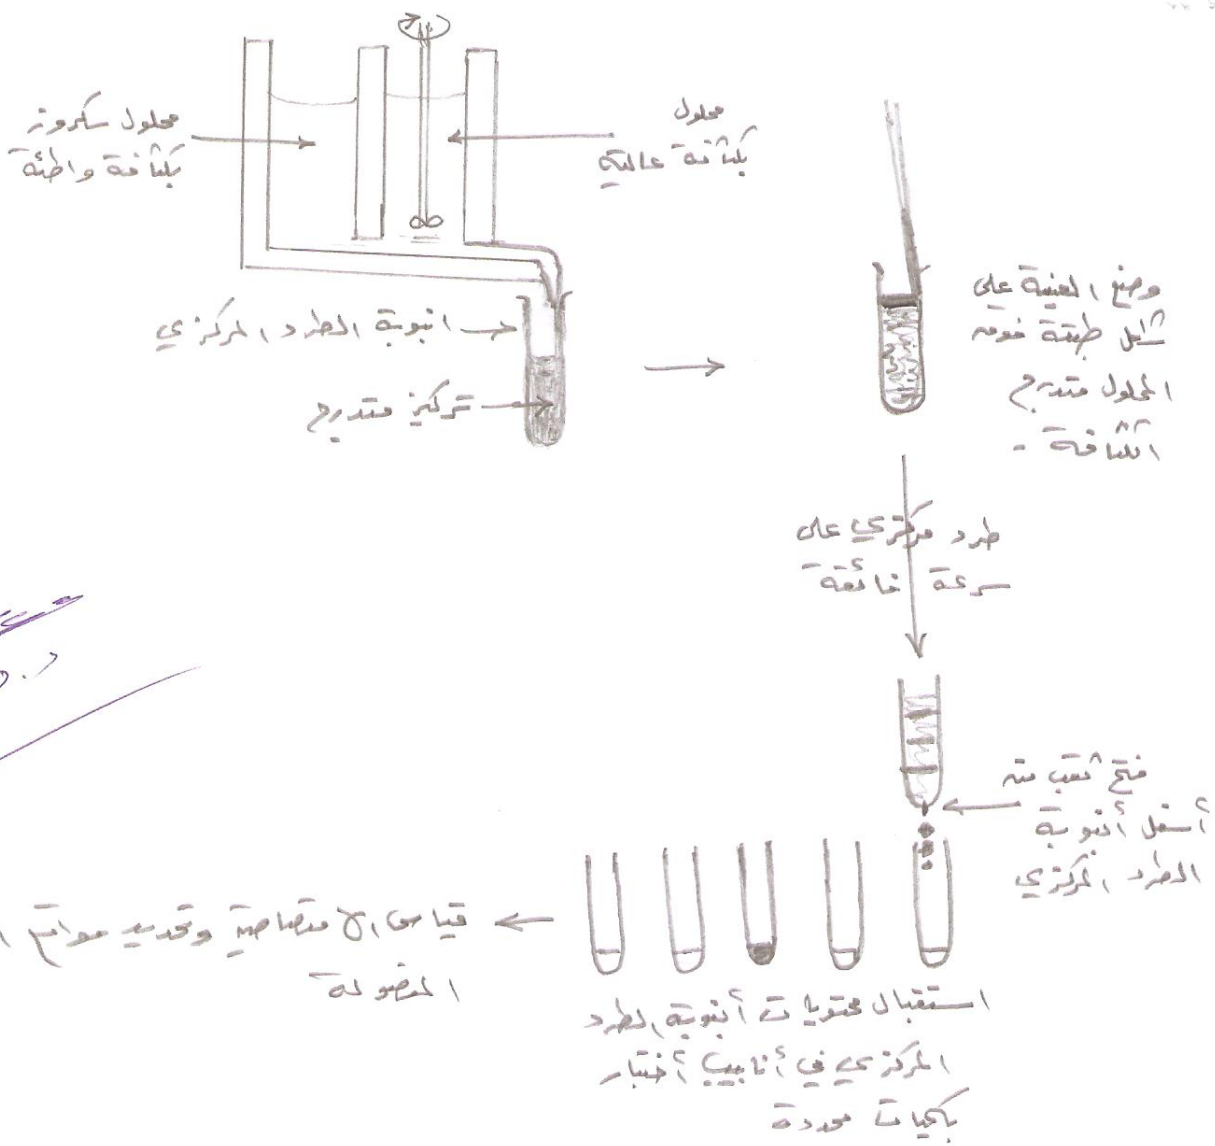 محلول سكروز
بكثافة واطئة
محلول
بكثافة عالية
انبوبة الطرد المركزي
تركيز متدرج
وضع العينة على
شكل طبقة فوق
المحلول متدرج
الكثافة -
طرد مركزي على
سرعة فائقة
فتح ثقب من
أسفل أنبوبة
الطرد المركزي
استقبال محتويات أنبوبة الطرد
المركزي في أنابيب أختبار
بكميات محددة
قياس الامتصاصية وتحديد مواقع
المفصولة